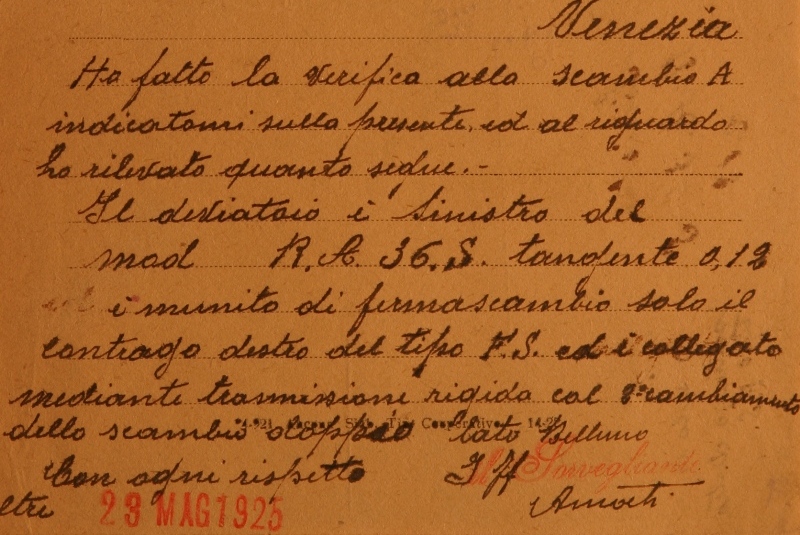 Venezia
Ho fatto la verifica allo scambio A
indicatomi sulla presente, ed al riguardo
ho rilevato quanto segue.-
Il deviatoio è sinistro del
mod R.A. 36.S. tangente 0,12
è munito di fermascambio solo il
contrago destro del tipo F.S. ed è collegato
mediante trasmissione rigida col 2° cambiamento
dello scambio doppio lato Belluno
Con ogni rispetto Il Sorvegliante
23 MAG 1925